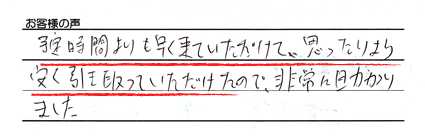 お客様の声
予定時間よりも早く来ていただけて、思ったりより
安く引き取っていただけたので、非常に助かり
ました